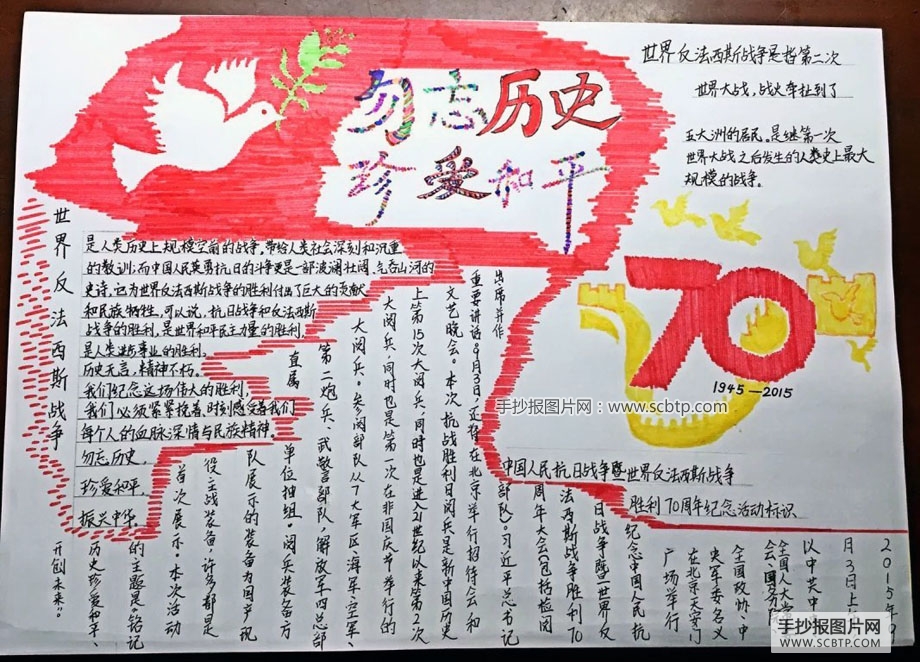 勿忘历史
珍爱和平
世界反法西斯战争是指第二次
世界大战，战史牵扯到了
五大洲的居民。是继第一次
世界大战之后发生的人类史上最大
规模的战争。
世界反法西斯战争
是人类历史上规模空前的战争，带给人类社会深刻和沉重
的教训；而中国人民英勇抗日的斗争更是一部波澜壮阔、气吞山河的
史诗，它为世界反法西斯战争的胜利付出了巨大的贡献
和民族牺牲。可以说，抗日战争和反法西斯
战争的胜利，是世界和平民主力量的胜利，
是人类进步事业的胜利。
历史无言，精神不朽。
我们纪念这场伟大的胜利，
我们必须紧紧挽着，时刻感受着我们
每个人的血脉深情与民族精神。
勿忘历史，
珍爱和平，
振兴中华。
70
1945—2015
手抄报图片网：www.scbtp.com
中国人民抗日战争暨世界反法西斯战争
胜利70周年纪念活动标识
2015年9
月3日上
以中共中
全国人大常
会、国务院
全国政协、中
央军委名义
在北京天安门
广场举行
纪念中国人民抗
日战争暨世界反
法西斯战争胜利70
周年大会（包括检阅
部队）。习近平总书记
出席并作
重要讲话9月3日，还将在北京举行招待会和
文艺晚会。本次抗战胜利日阅兵是新中国历史
上第15次大阅兵，同时也是进入21世纪以来第2次
大阅兵，同时也是第一次在非国庆节举行的
大阅兵。参阅部队从7大军区、海军、空军、
第二炮兵、武警部队、解放军四总部
直属
单位抽组。阅兵装备方
队展示的装备为国产现
役主战装备，许多都是
首次展示。本次活动
的主题是“铭记
历史珍爱和平、
开创未来。”
手抄报图片网
WWW.SCBTP.COM